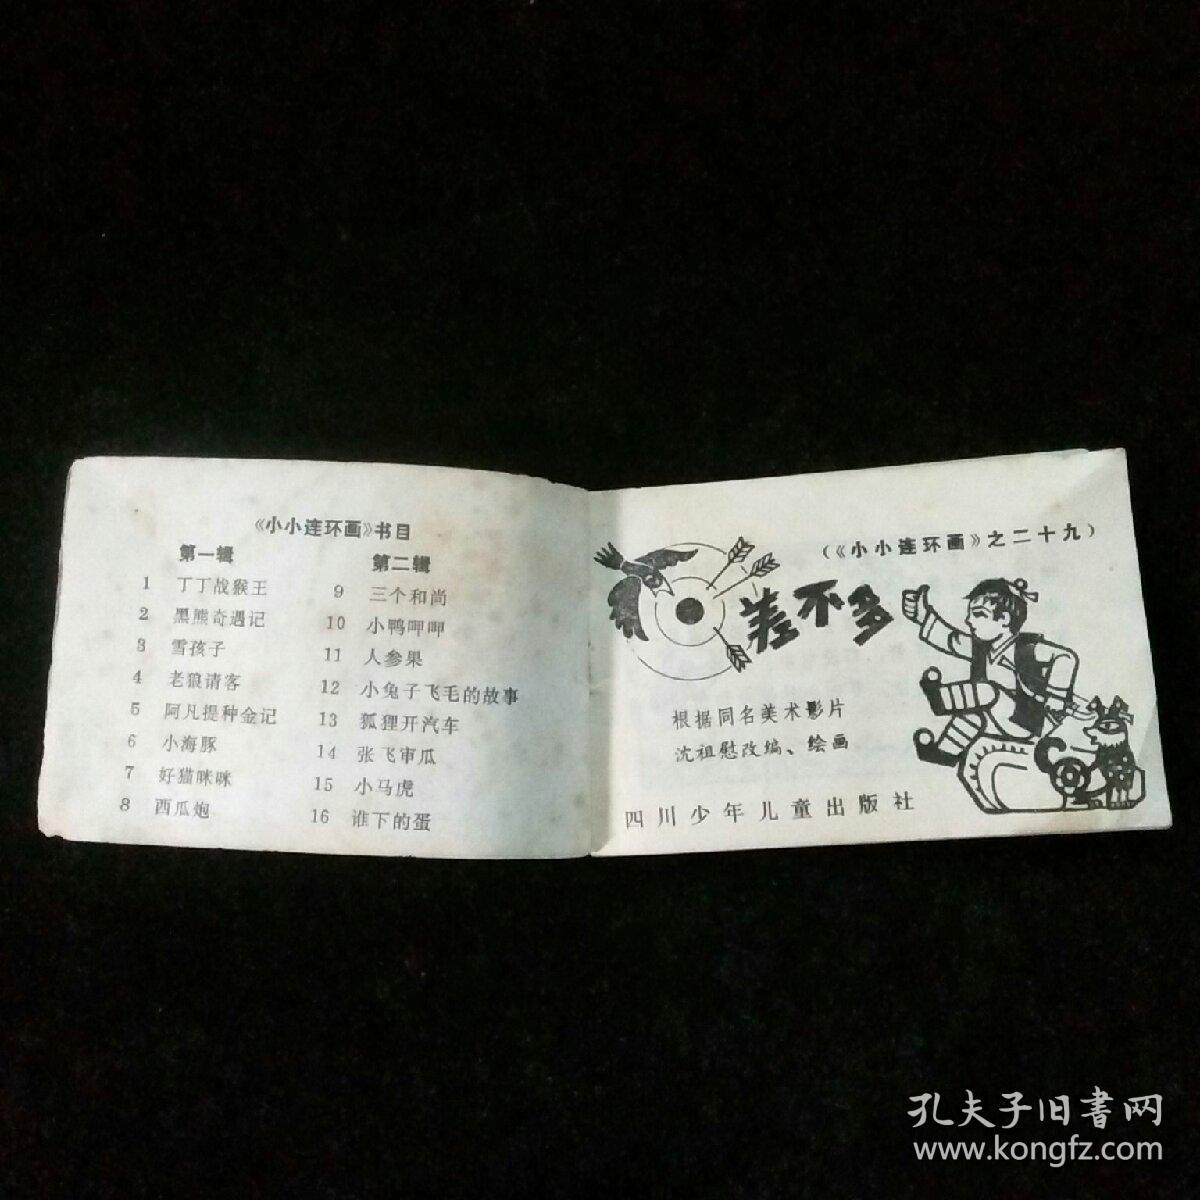 《小小连环画》书目
第一辑
1 丁丁战猴王
2 黑熊奇遇记
3 雪孩子
4 老狼请客
5 阿凡提种金记
6 小海豚
7 好猫咪咪
8 西瓜炮
第二辑
9 三个和尚
10 小鸭呷呷
11 人参果
12 小兔子飞毛的故事
13 狐狸开汽车
14 张飞审瓜
15 小马虎
16 谁下的蛋
（《小小连环画》之二十九）
差不多
根据同名美术影片
沈祖慰改编、绘画
四川少年儿童出版社
孔夫子旧書网
www.kongfz.com